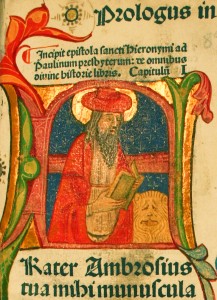 Prologus in
Incipit epistola sancti Hieronymi ad
Paulinum presbyterum: de omnibus
divine historie libris. Capitulum I
Frater Ambrosius
tua mihi munuscula